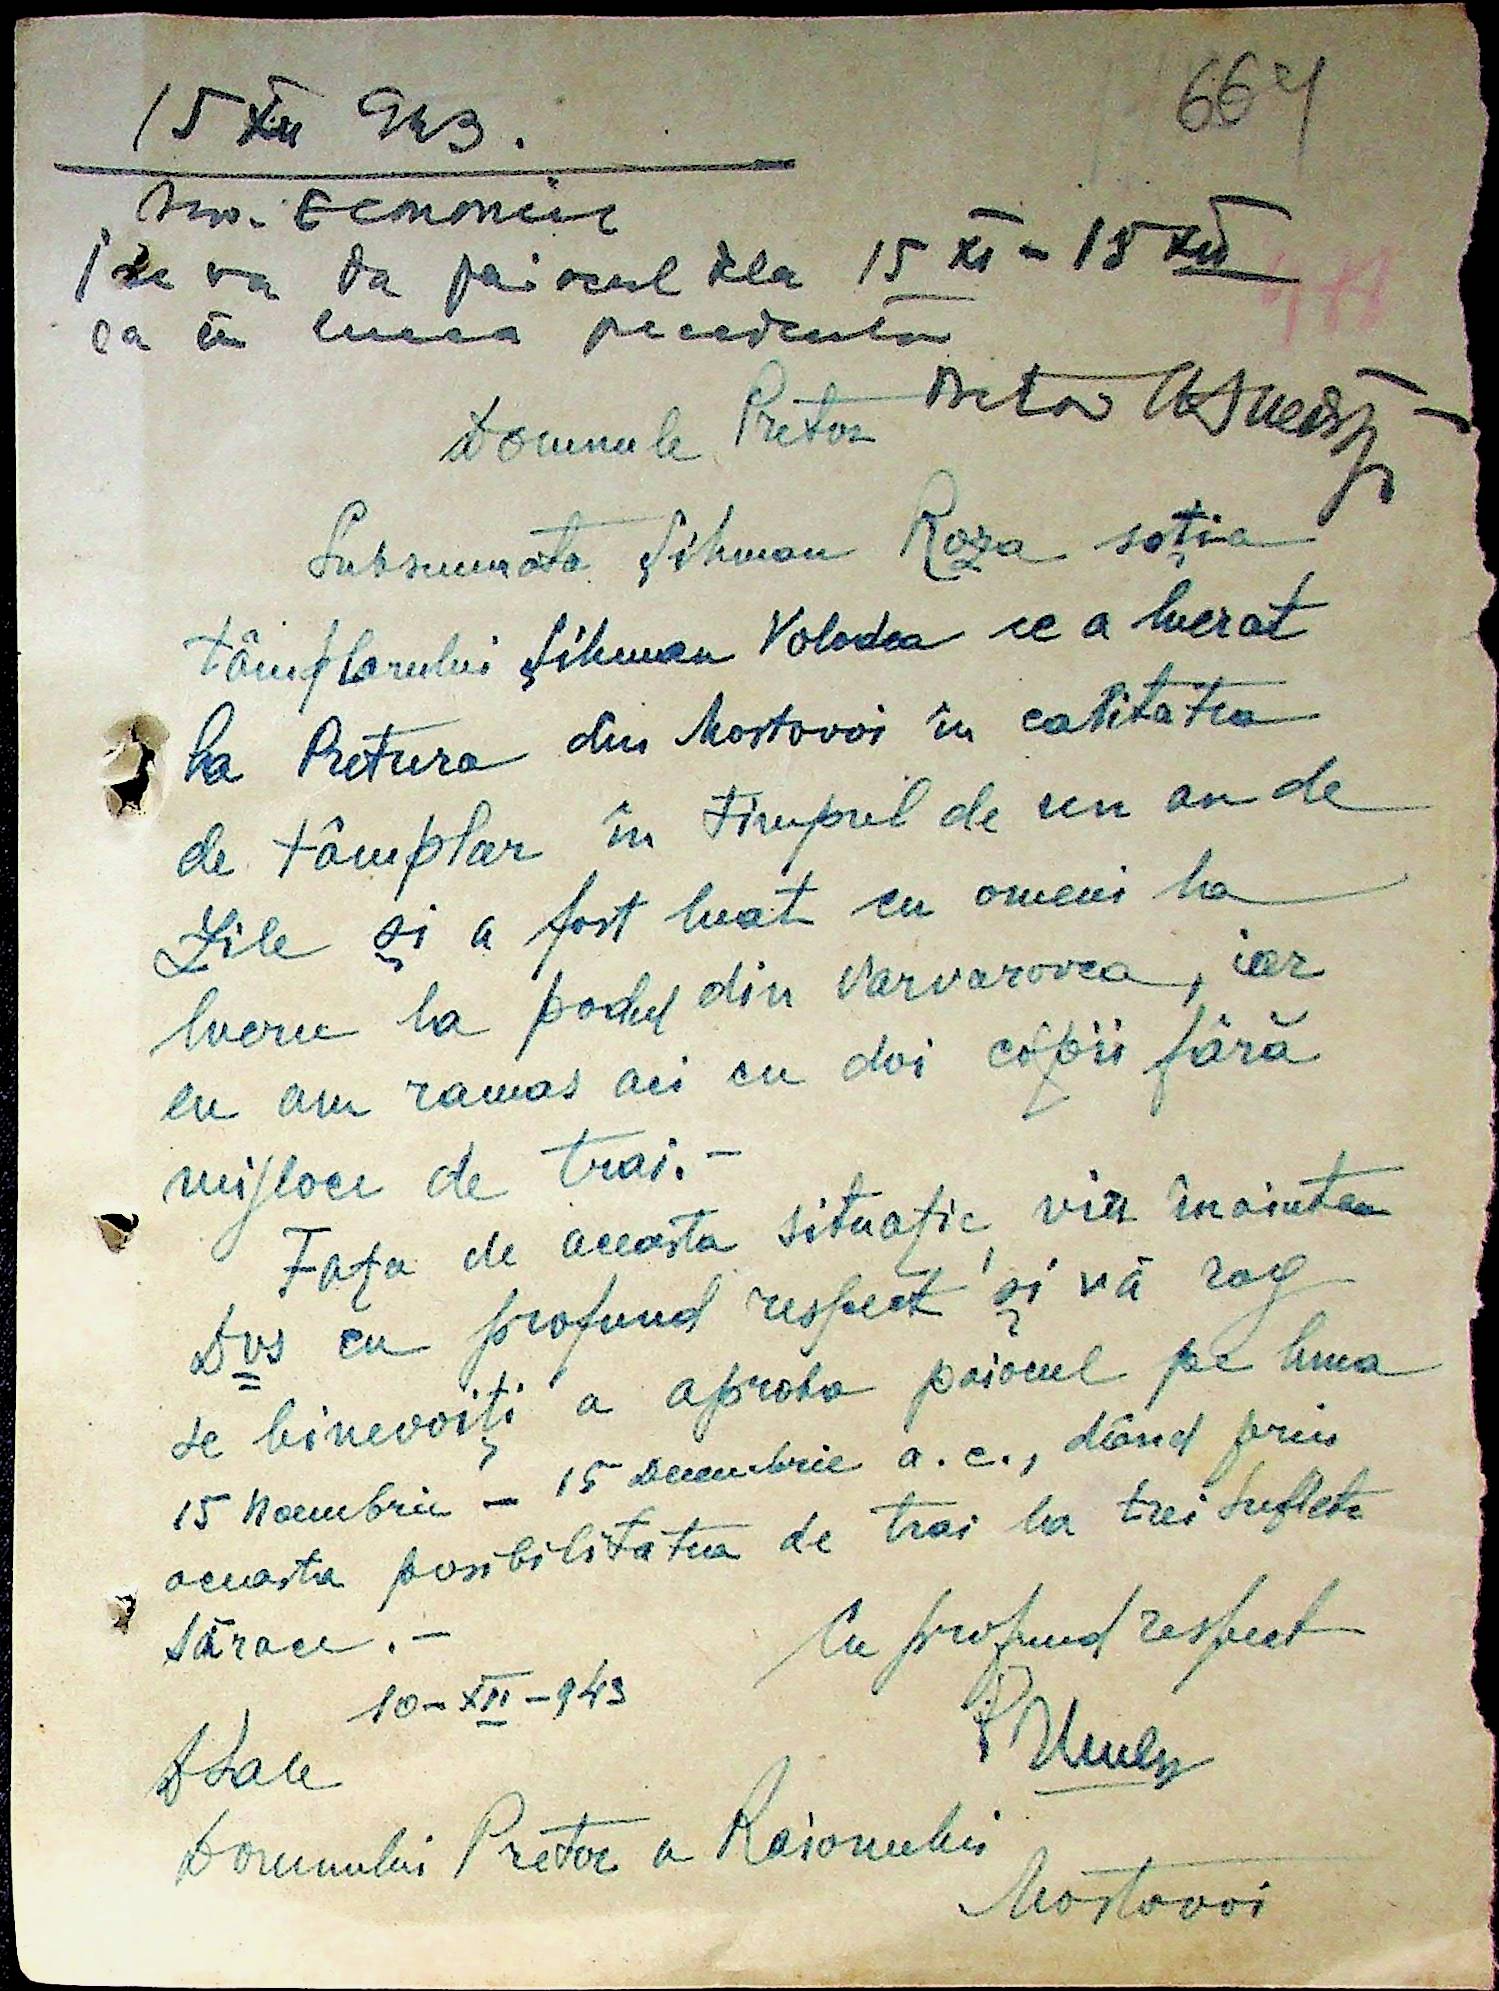 664
15 XII 943.
Serv. Economic
I se va da paiocul dela 15 XI - 15 XII
ca în luna precedenta
Pretor
Domnule Pretor
Subsemnata Șihman Roza soția
tâmplarului Șihman Volodea ce a lucrat
la Pretura din Mostovoi în calitatea
de tâmplar în timpul de un an de
zile și a fost luat cu omeni la
lucru la podul din Varvarovca, iar
eu am ramas aci cu doi copii fără
mijloce de trai.-
Fața de aceasta situație, vin înaintea
Dvs cu profund respect și vă rog
se binevoiți a aproba paiocul pe luna
15 Noembrie - 15 Decembrie a.c., dând prin
aceasta posibilitatea de trai la trei suflete
sărace.-
Cu profund respect
10-XII-943
DSale
Domnului Pretor a Raionului
Mostovoi